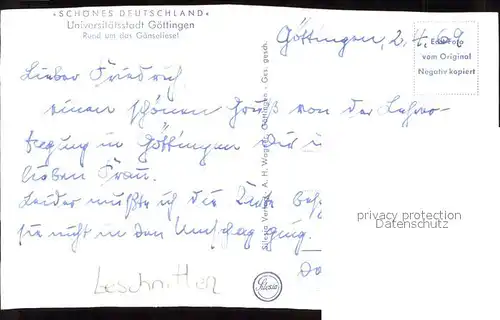 «SCHÖNES DEUTSCHLAND»
Universitätsstadt Göttingen
Rund um das Gänseliesel
Göttingen, 2.4.69
Echt Foto
vom Original
Negativ kopiert
Lieber Friedrich
einen schönen Gruß von der
tagung in Göttingen Dir u
lieben Frau.
Leider mußte ich die Karte
sie nicht in den Umschlag ging.
Silesia Verlag A. H. Wagner, Göttingen · Ges. gesch.
Silesia
beschnitten
privacy protection
Datenschutz